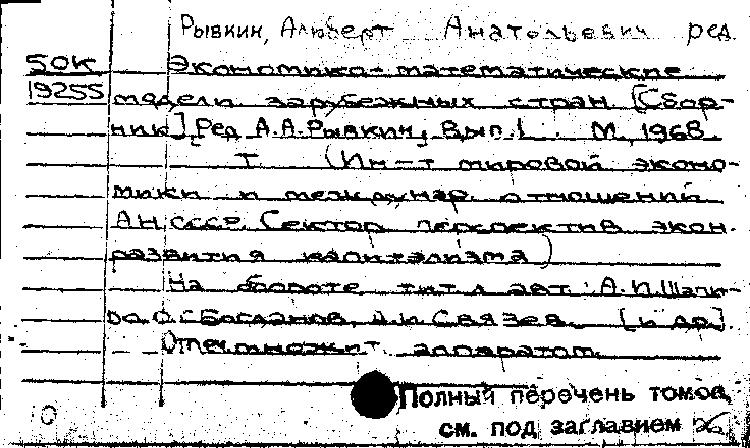 Рывкин, Альберт Анатольевич ред.
50К Экономико-математические
19255 модели зарубежных стран [Сбор-
ник] Ред А.А. Рывкин, Вып. 1. М, 1968.
Т. (Ин-т мировой эконо-
мики и междунар. отношений
АН СССР. Сектор перспектив экон.
развития капитализма)
На обороте тит. л авт.: А.И. Шапи-
ро, О.С Богданов, И Связев [и др].
Отпеч. множит. аппаратом.
Полный перечень томов,
см. под заглавием